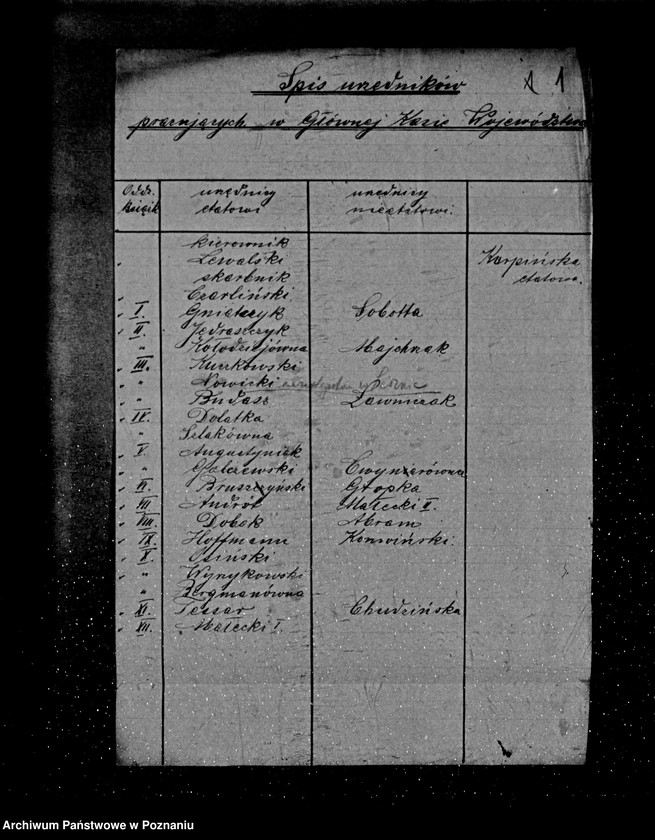 Spis urzędników 1
pracujących w Głównej Kasie Województwa
Oddz. księgi urzędnicy etatowi urzędnicy nieetatowi.
kierownik
Lewalski Karpińska
skarbnik etatowa.
Czarliński
I. Gniatczyk Sobotta
II. Jędraszczyk
" Kołodziejówna Majchrzak
III. Kuczkowski
" Nowicki
" Budasz Ławniczak
IV. Dolatka
" Szlakówna
V. Augustyniak
" Galczewski Cwynzarówna
VI. Bruszczyński Głopka
VII. Andrół Małecki II.
VIII. Dobek Abram
IX. Hoffmann Konwiński.
X. Osiński
" Wynykowski
" Bergmanówna
XI. Tessar Chudzińska
XII. Małecki I.
Archiwum Państwowe w Poznaniu